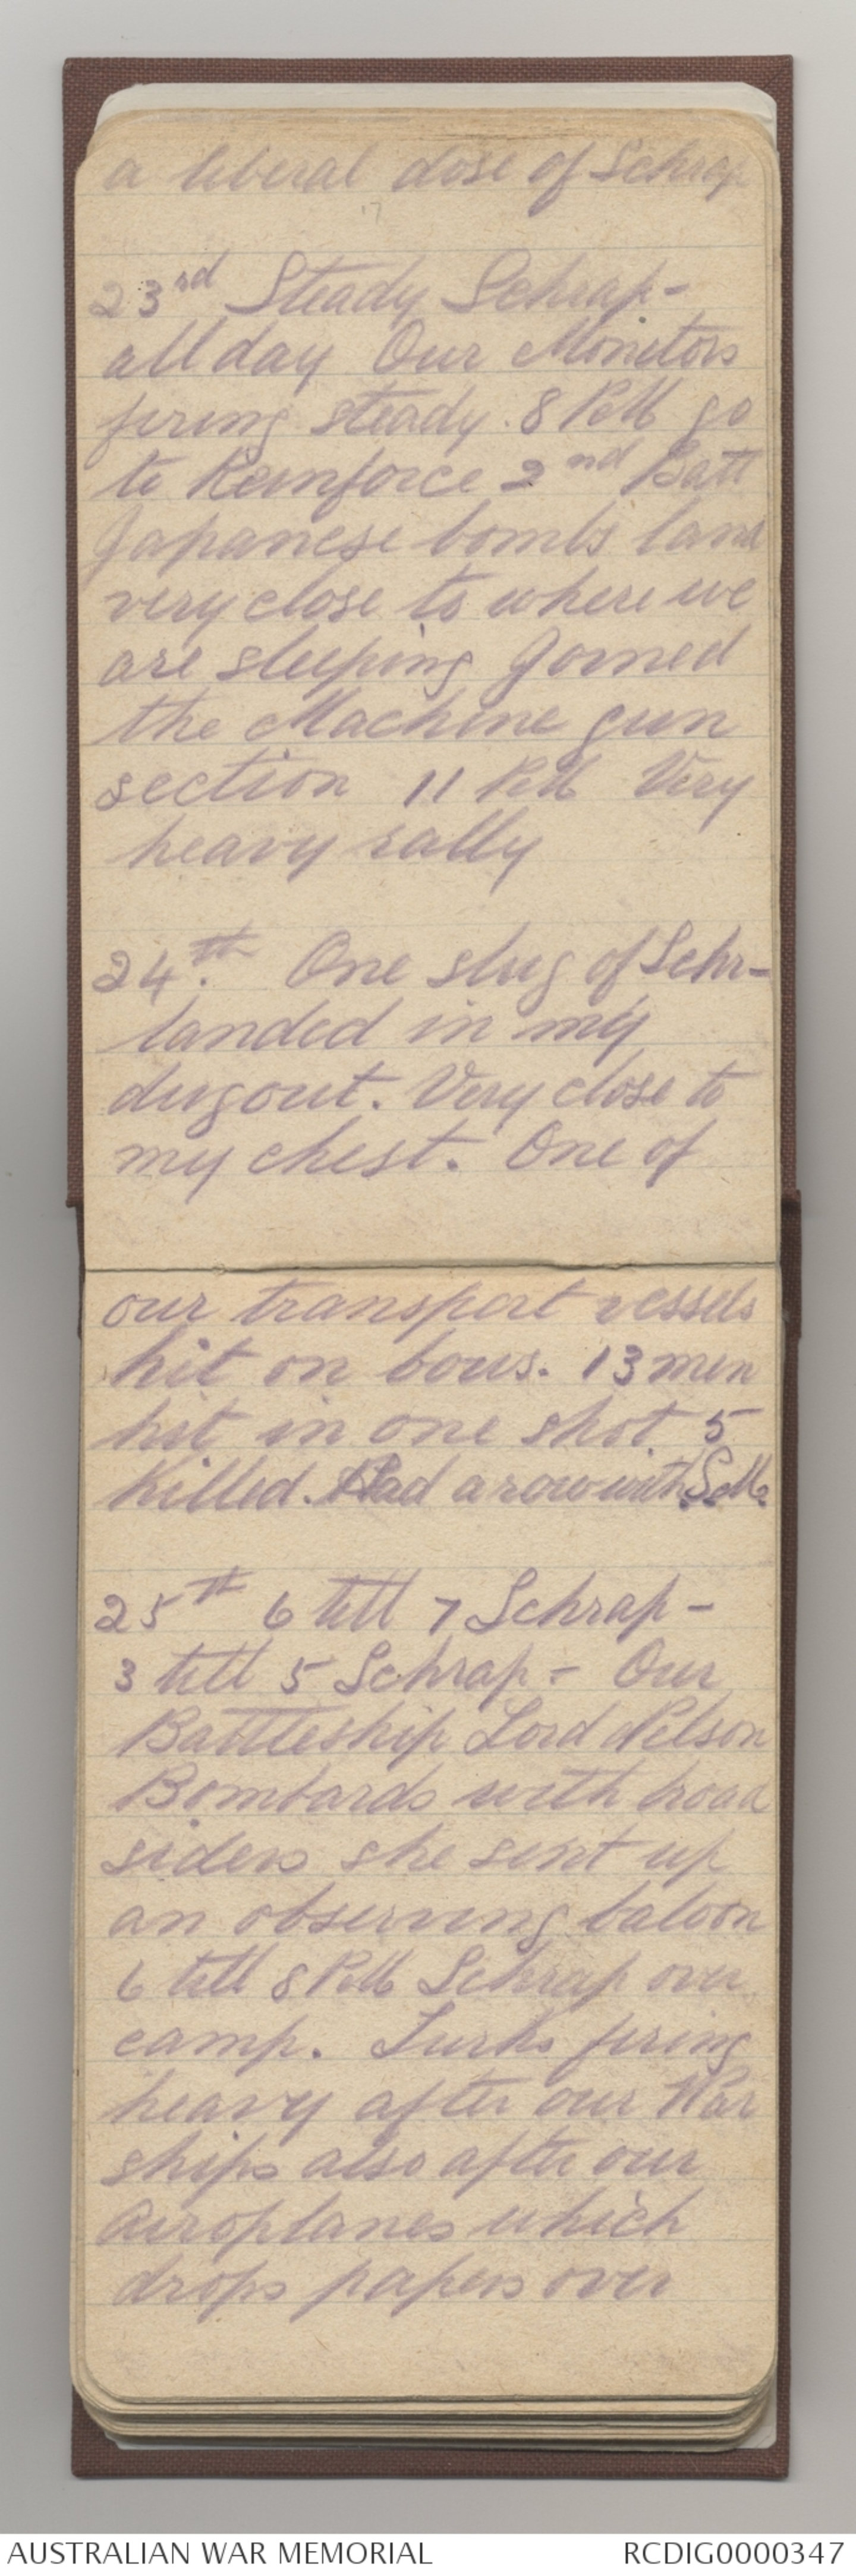 a liberal dose of Schrap
17
23rd Steady Schrap-
all day Our Monitors
firing steady. 8 PM go
to Reinforce 2nd Batt
Japanese bombs land
very close to where we
are sleeping Joined
the Machine gun
section 11 PM Very
heavy rally
24th. One slug of Schr-
landed in my
dugout. Very close to
my chest. One of
our transport vessels
hit on bows. 13 men
hit in one shot. 5
Killed. Had a row with
25th 6 till 7 Schrap-
3 till 5 Schrap- Our
Battleship Lord Nelson
Bombards with broad
siders she sent up
an observing baloon
6 till 8 PM Schrap over
camp. Turks firing
heavy after our War
ships also after our
Airoplanes which
drops papers over
AUSTRALIAN WAR MEMORIAL
RCDIG0000347